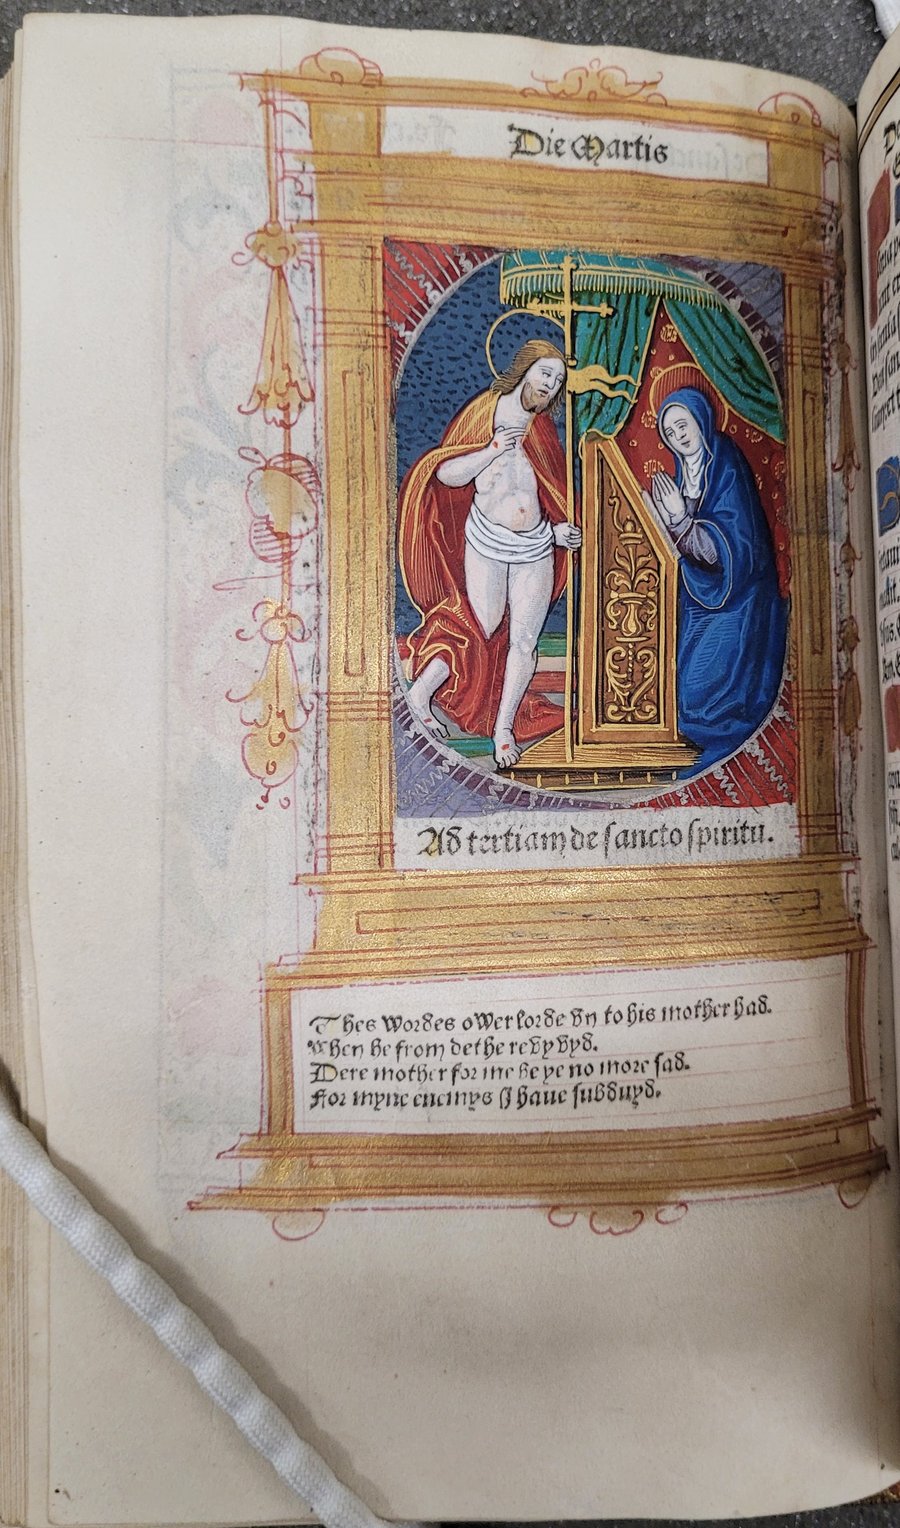 Die Martis
Ad tertiam de sancto spiritu.
Thes wordes ower lorde vn to his mother had.
When he from dethe revyvyd.
Dere mother for me be ye no more sad.
For myne enemys I haue subduyd.